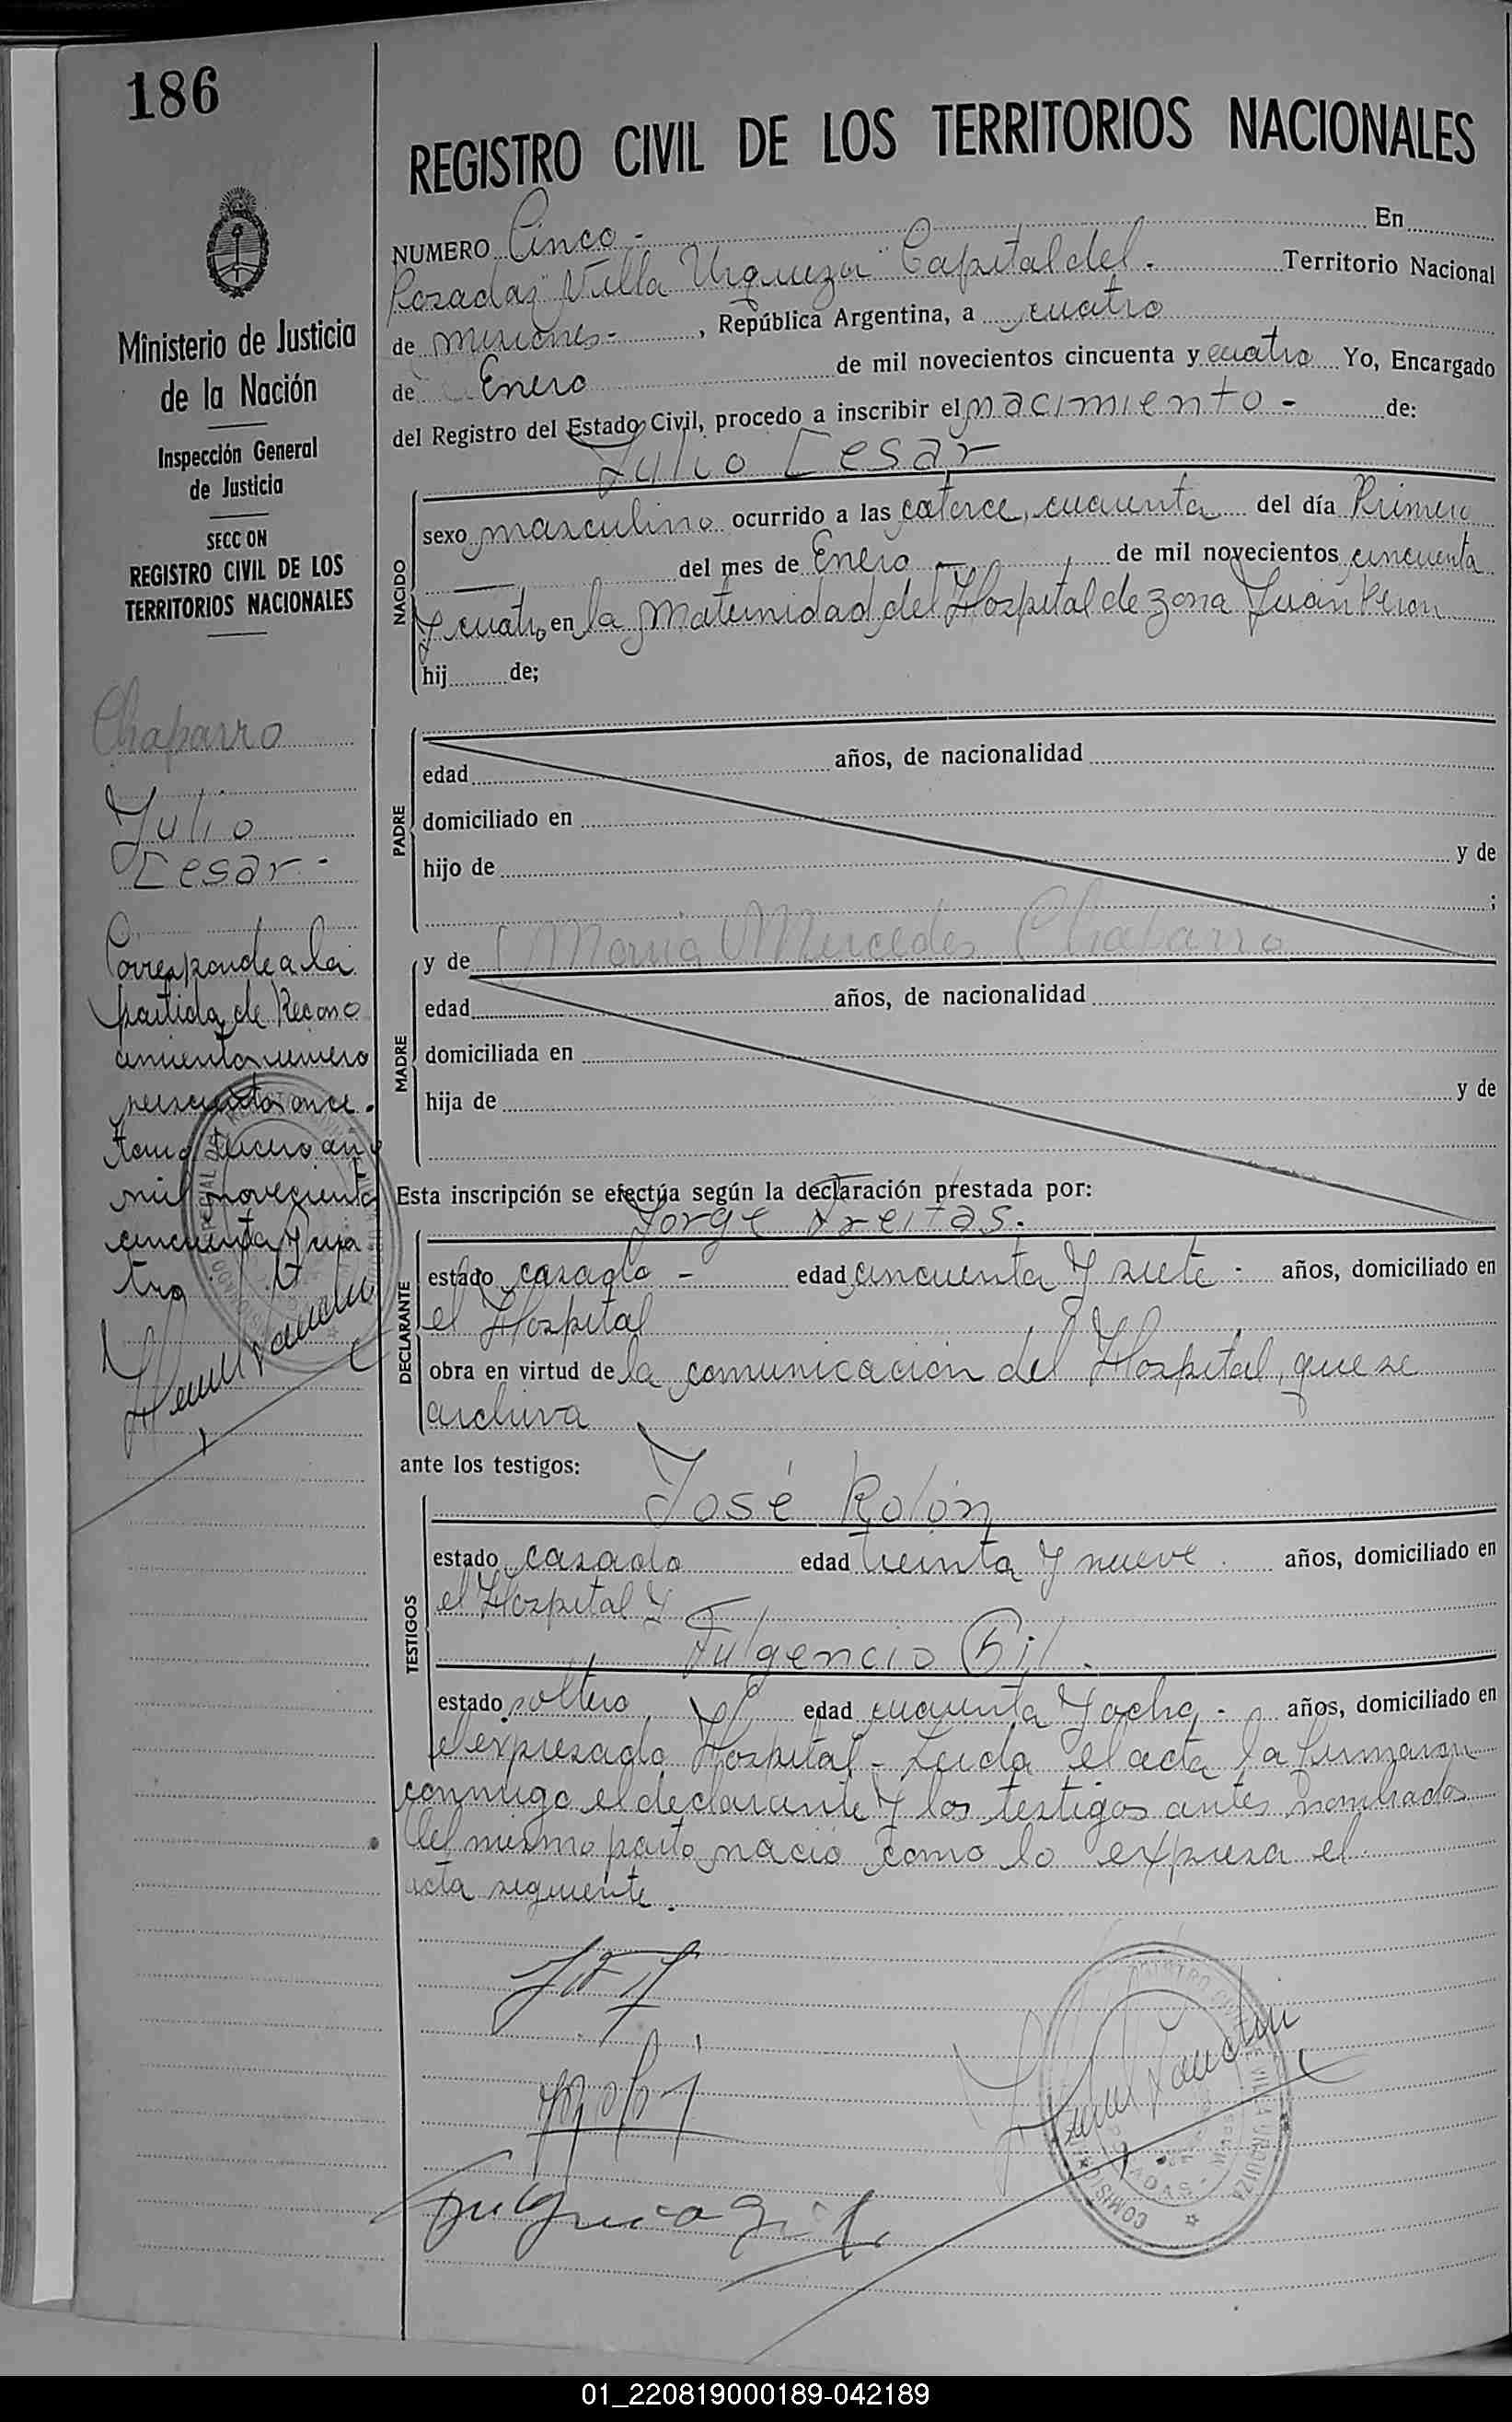 186
REGISTRO CIVIL DE LOS TERRITORIOS NACIONALES
NUMERO Cinco - En
Posadas "Villa Urquiza" Capital del. Territorio Nacional
de Misiones - , República Argentina, a cuatro
de Enero de mil novecientos cincuenta y cuatro Yo, Encargado
del Registro del Estado Civil, procedo a inscribir el nacimiento - de:
Julio Cesar
NACIDO
sexo masculino ocurrido a las catorce, cuarenta del día Primero
del mes de Enero - de mil novecientos cincuenta
y cuatro en la Maternidad del Hospital de zona Juan Peron
hij de;
PADRE
edad años, de nacionalidad
domiciliado en
hijo de y de
;
MADRE
y de Maria Mercedes Chaparro
edad años, de nacionalidad
domiciliada en
hija de y de
Esta inscripción se efectúa según la declaración prestada por:
Jorge Freitas.
DECLARANTE
estado casado - edad cincuenta y siete - años, domiciliado en
el Hospital
obra en virtud de la comunicación del Hospital, que se
archiva
ante los testigos:
José Rolón
TESTIGOS
estado casado edad treinta y nueve. años, domiciliado en
el Hospital y
Fulgencio Gil.
estado soltero edad cuarenta y ocho - años, domiciliado en
el expresado Hospital - Leida el acta la firmaron
conmigo el declarante y los testigos antes nombrados
Del mismo parto nació como lo expresa el
acta siguiente.
Fulgencio Gil
Ministerio de Justicia
de la Nación
Inspección General
de Justicia
SECC ON
REGISTRO CIVIL DE LOS
TERRITORIOS NACIONALES
Chaparro
Julio
Cesar -
Corresponde a la
partida de Recono
cimiento numero
seiscientos once.
tomo tercero año
mil novecientos
cincuenta y cua
tro
VILLA URQUIZA
01_220819000189-042189